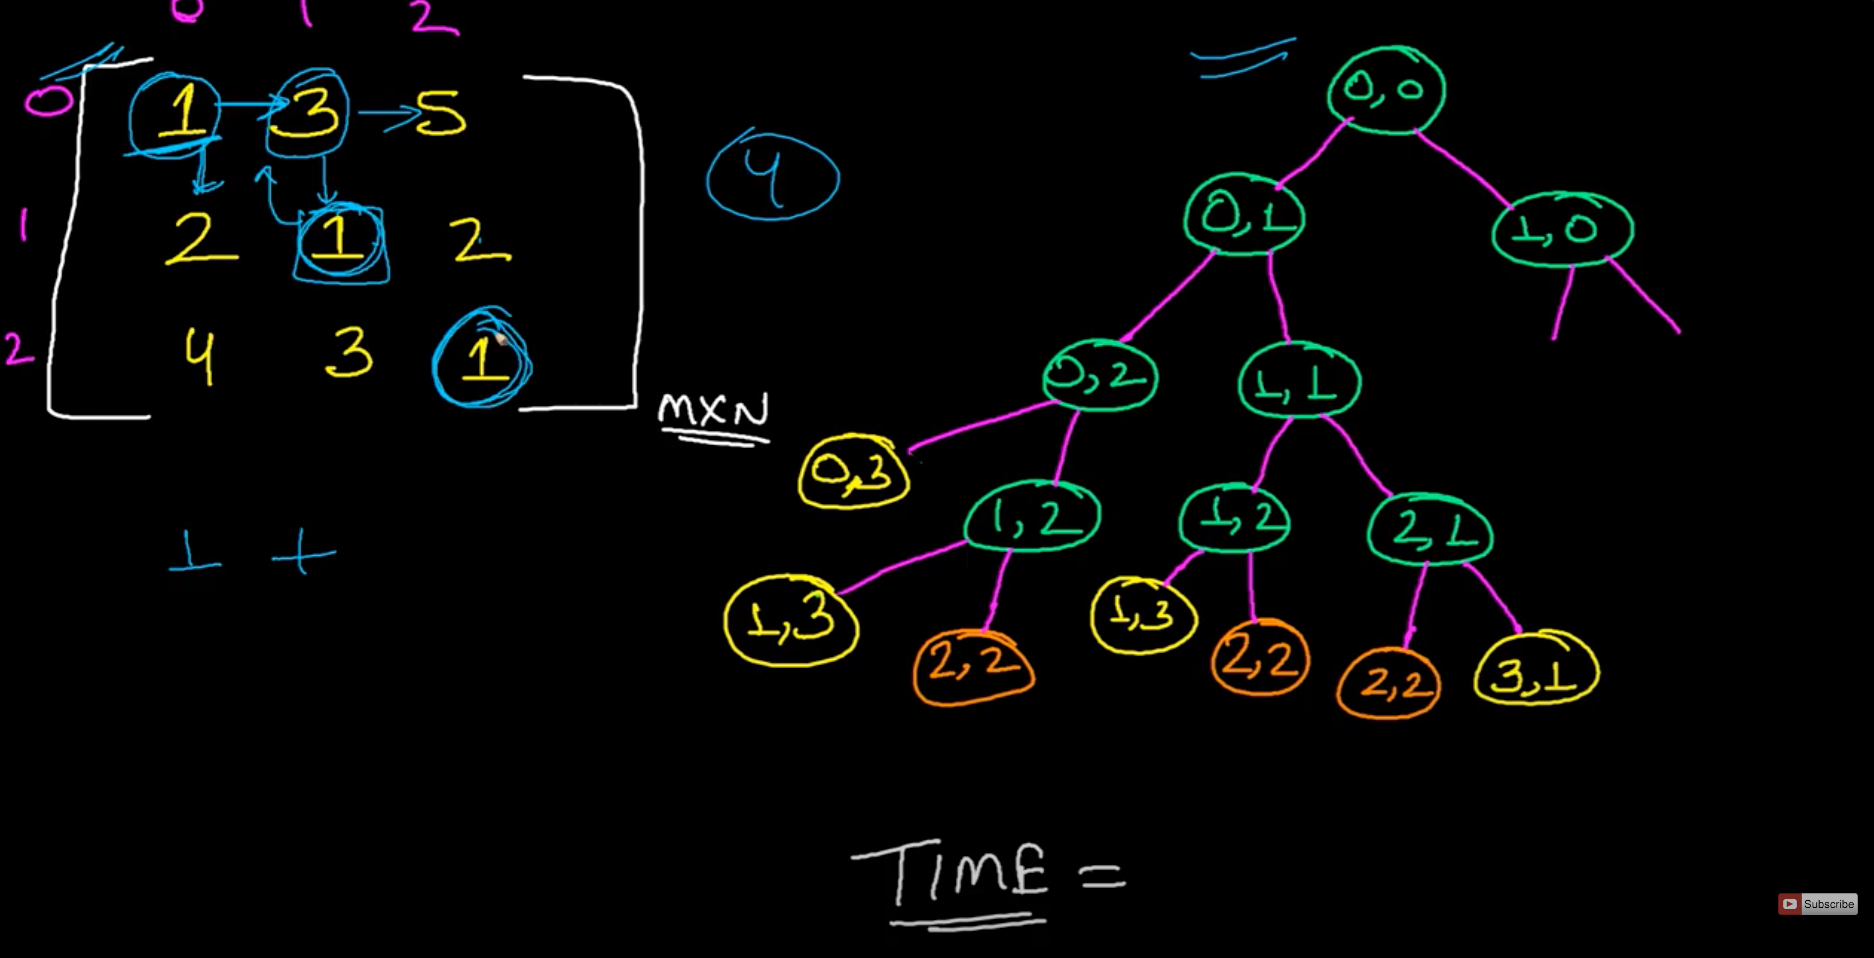 0 1 2
0 1 3 5
1 2 1 2
2 4 3 1
4
MXN
1 +
0,0
0,1 1,0
0,2 1,1
0,3 1,2 1,2 2,1
1,3 2,2 1,3 2,2 2,2 3,1
TIME =
Subscribe